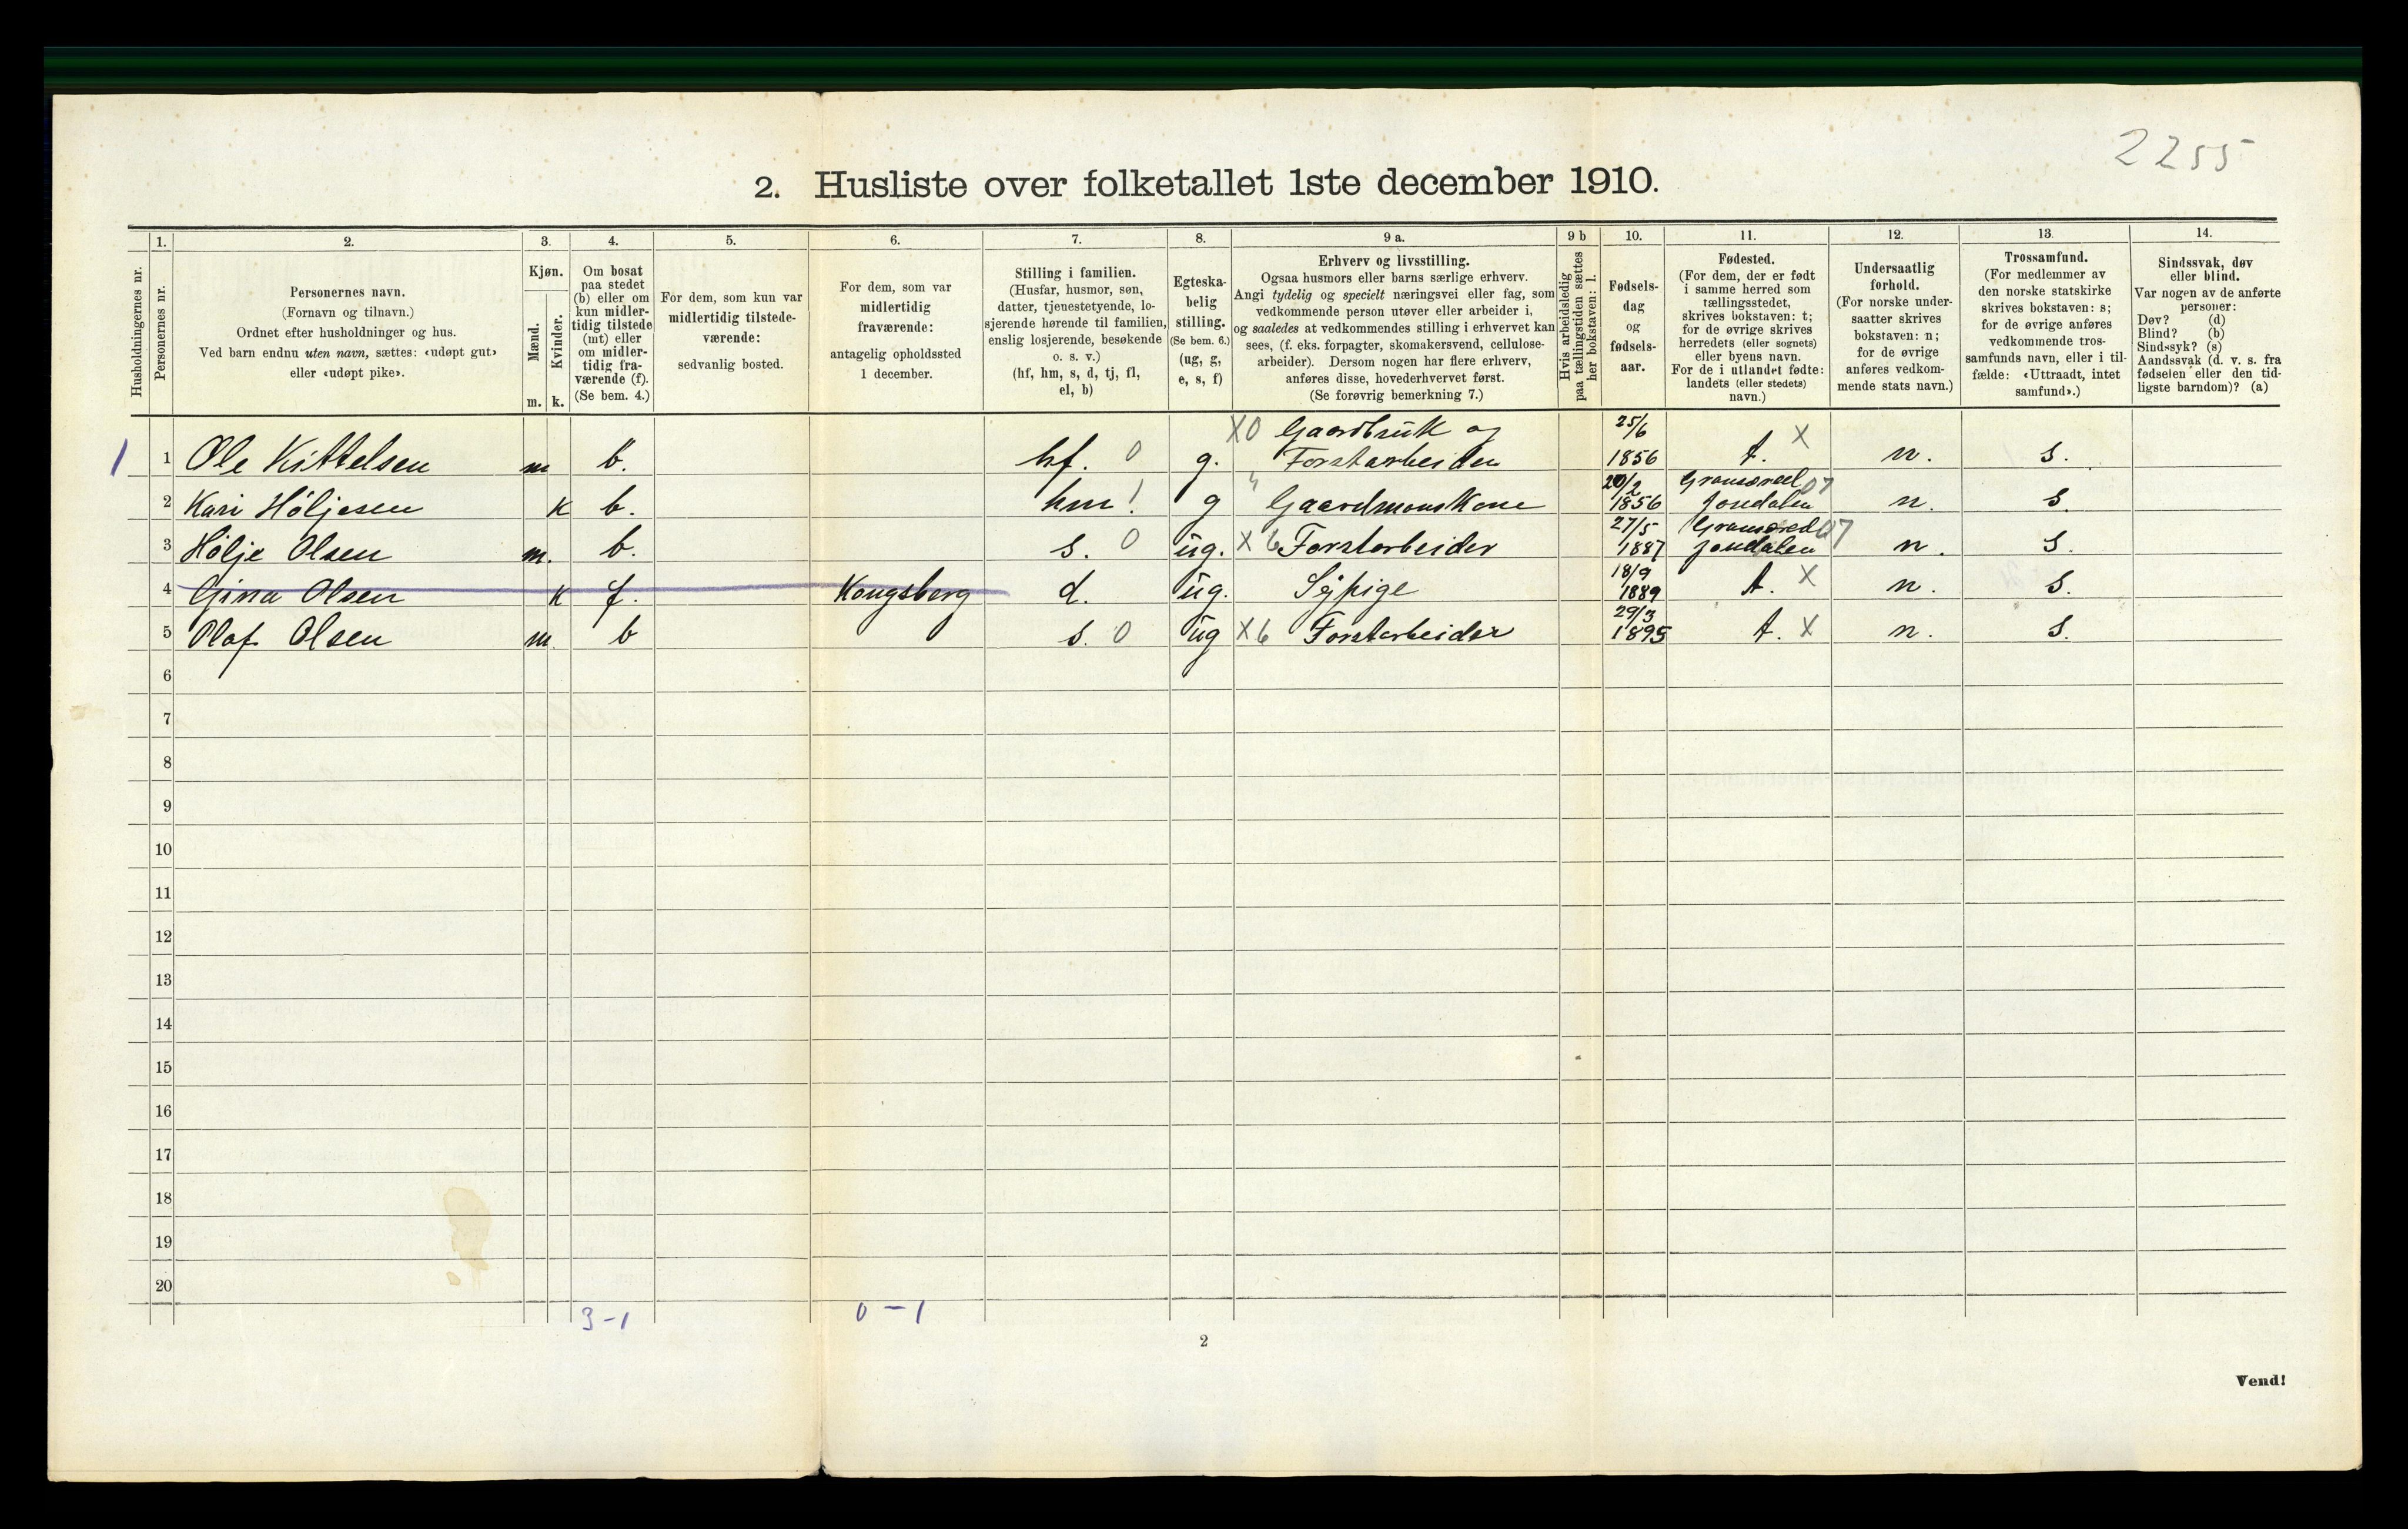 2255
2. Husliste over folketallet 1ste december 1910.
1. 2. 3. 4. 5. 6. 7. 8. 9 a. 9 b 10. 11. 12. 13. 14.
Husholdningernes nr.
Personernes nr.
Personernes navn.
(Fornavn og tilnavn.)
Ordnet efter husholdninger og hus.
Ved barn endnu uten navn, sættes: «udøpt gut»
eller «udøpt pike».
Kjøn.
Mænd.
Kvinder.
m. k.
Om bosat
paa stedet
(b) eller om
kun midler-
tidig tilstede
(mt) eller
om midler-
tidig fra-
værende (f).
(Se bem. 4.)
For dem, som kun var
midlertidig tilstede-
værende:
sedvanlig bosted.
For dem, som var
midlertidig
fraværende:
antagelig opholdssted
1 december.
Stilling i familien.
(Husfar, husmor, søn,
datter, tjenestetyende, lo-
sjerende hørende til familien,
enslig losjerende, besøkende
o. s. v.)
(hf, hm, s, d, tj, fl,
el, b)
Egteska-
belig
stilling.
(Se bem. 6.)
(ug, g,
e, s, f)
Erhverv og livsstilling.
Ogsaa husmors eller barns særlige erhverv.
Angi tydelig og specielt næringsvei eller fag, som
vedkommende person utøver eller arbeider i,
og saaledes at vedkommendes stilling i erhvervet kan
sees, (f. eks. forpagter, skomakersvend, cellulose-
arbeider). Dersom nogen har flere erhverv,
anføres disse, hovederhvervet først.
(Se forøvrig bemerkning 7.)
Hvis arbeidsledig
paa tællingstiden sættes
her bokstaven: l.
Fødsels-
dag
og
fødsels-
aar.
Fødested.
(For dem, der er født
i samme herred som
tællingsstedet,
skrives bokstaven: t;
for de øvrige skrives
herredets (eller sognets)
eller byens navn.
For de i utlandet fødte:
landets (eller stedets)
navn.)
Undersaatlig
forhold.
(For norske under-
saatter skrives
bokstaven: n;
for de øvrige
anføres vedkom-
mende stats navn.)
Trossamfund.
(For medlemmer av
den norske statskirke
skrives bokstaven: s;
for de øvrige anføres
vedkommende tros-
samfunds navn, eller i til-
fælde: «Uttraadt, intet
samfund».)
Sindssvak, døv
eller blind.
Var nogen av de anførte
personer:
Døv? (d)
Blind? (b)
Sindssyk? (s)
Aandssvak (d. v. s. fra
fødselen eller den tid-
ligste barndom)? (a)
X0 Gaardbruk og 25/6
1 1 Ole Kittelsen m b. hf. 0 g. Forstarbeider 1856 t. X n. s.
20/2
2 Kari Høljesen k b. hm ! g Gaardmanskone 1856 Jondalen 07 n. s.
27/5
3 Hølje Olsen m. b. s. 0 ug. X 6 Forstarbeider 1887 Jondalen 07 n. s.
18/9
4 Gina Olsen k f. Kongsberg d. ug. Sypige 1889 t. X n. s.
29/3
5 Olaf Olsen m. b s. 0 ug X6 Forstarbeider 1895 t. X n. s.
6
7
8
9
10
11
12
13
14
15
16
17
18
19
20
3-1 0-1
2
Vend!